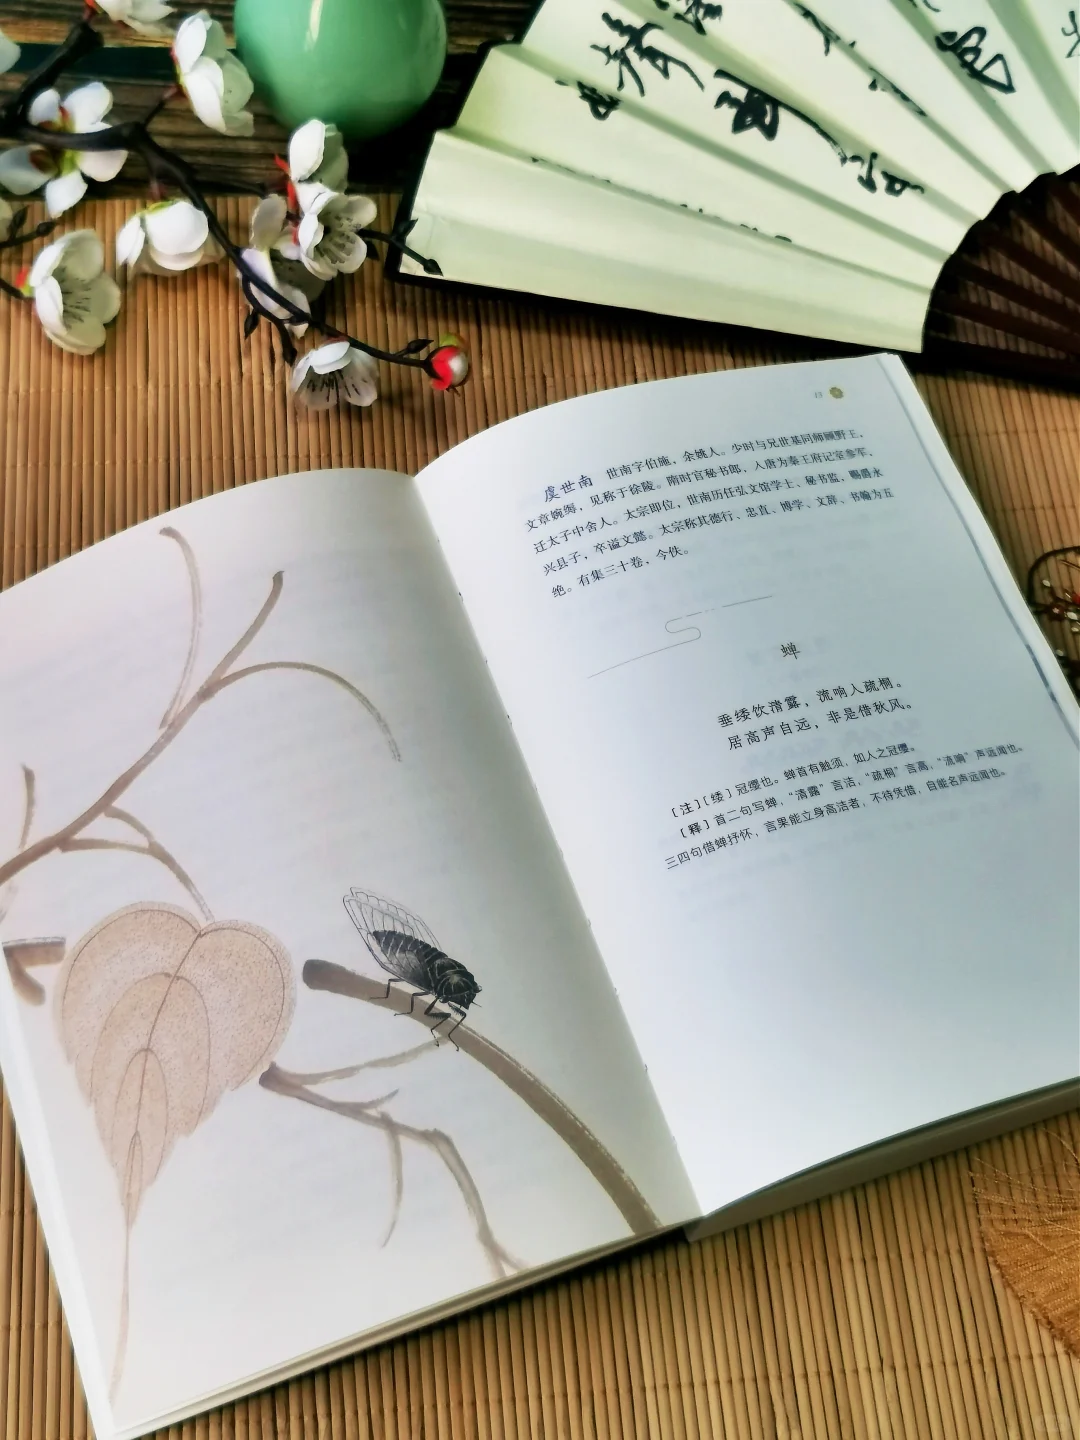 13
虞世南 世南字伯施，余姚人。少时与兄世基同师顾野王，
文章婉缛，见称于徐陵。隋时官秘书郎，入唐为秦王府记室参军，
迁太子中舍人。太宗即位，世南历任弘文馆学士、秘书监，赐爵永
兴县子，卒谥文懿。太宗称其德行、忠直、博学、文辞、书翰为五
绝。有集三十卷，今佚。
蝉
垂緌饮清露，流响入疏桐。
居高声自远，非是借秋风。
［注］［緌］冠缨也。蝉首有触须，如人之冠缨。
［释］首二句写蝉，“清露”言洁，“疏桐”言高，“流响”声远闻也。
三四句借蝉抒怀，言果能立身高洁者，不待凭借，自能名声远闻也。